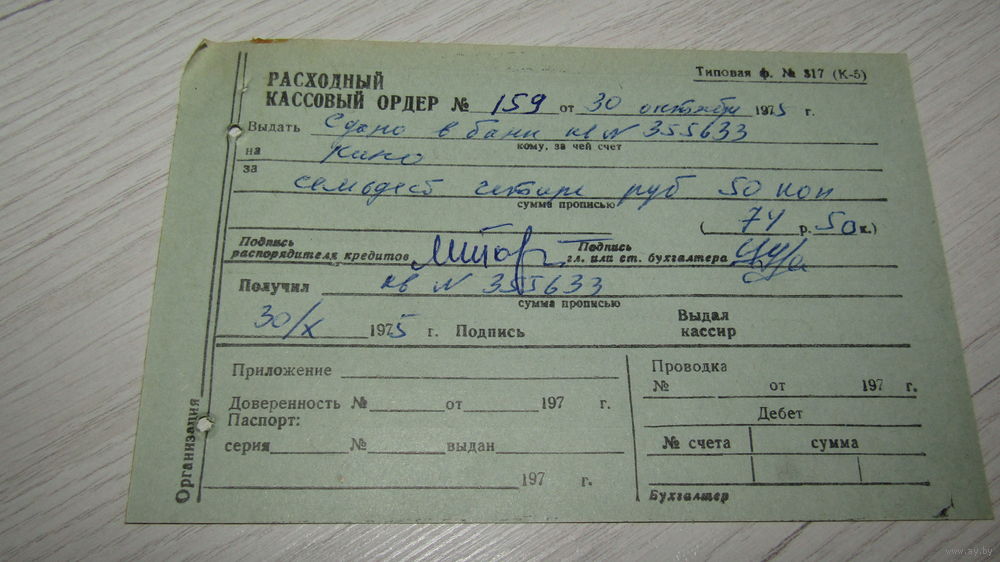 Типовая ф. № 317 (К-5)
РАСХОДНЫЙ
КАССОВЫЙ ОРДЕР № 159 от 30 октября 1975 г.
Выдать Сдано в банк кв N 355633
кому, за чей счет
на кино
за
семьдест четыре руб 50 коп
сумма прописью
( 74 р. 50 к.)
Подпись
распорядителя кредитов
Подпись
гл. или ст. бухгалтера
Получил кв N 355633
сумма прописью
30/X 1975 г. Подпись
Выдал
кассир
Приложение
Доверенность № от 197 г.
Паспорт:
серия № выдан
197 г.
Проводка
№ от 197 г.
Дебет
№ счета сумма
Бухгалтер
Организация
www.ay.by